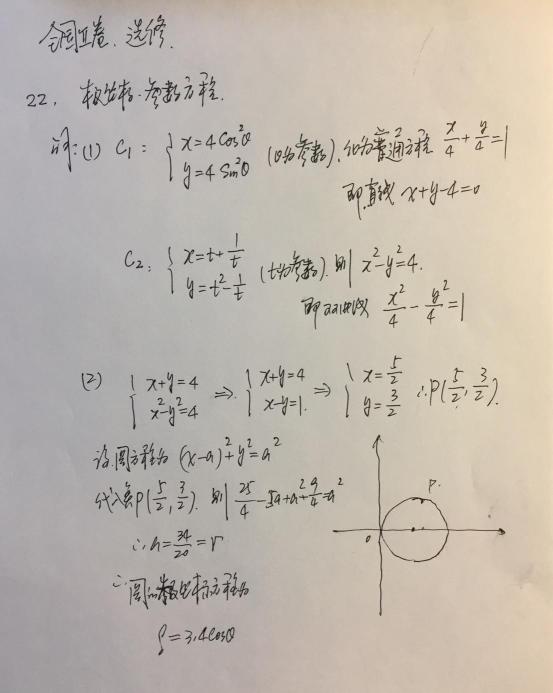 全国II卷、选修.
22、极坐标·参数方程.
解:(1) C₁: { x=4cos²θ y=4sin²θ (θ为参数), 化为普通方程 x/4 + y/4 = 1
即直线 x+y-4=0
C₂: { x=t+1/t y=t²-1/t (t为参数). 则 x²-y²=4.
即双曲线 x²/4 - y²/4 = 1
(2) { x+y=4 x²-y²=4 ⇒ { x+y=4 x-y=1. ⇒ { x=5/2 y=3/2 ∴P(5/2, 3/2).
设圆方程为 (x-a)²+y²=a²
代入点P(5/2, 3/2). 则 25/4 -5a+a²+9/4=a²
P.
∴a=34/20=r
0
∴圆的极坐标方程为
ρ=3.4cosθ